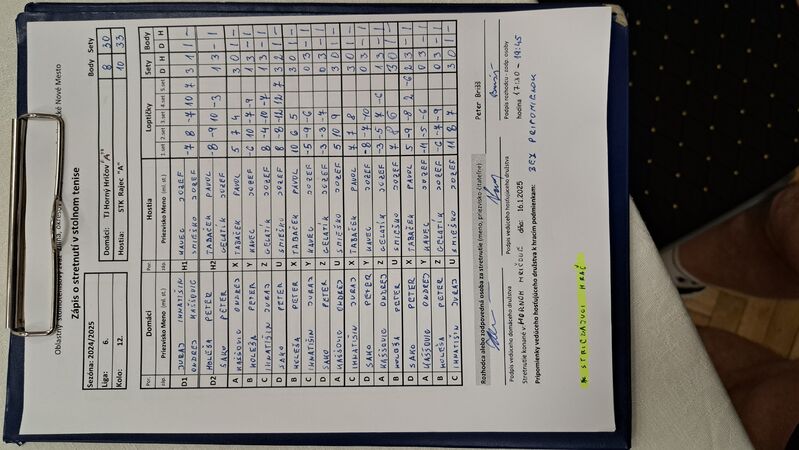 Zápis o stretnutí v stolnom tenise
Sezóna: 2024/2025
Liga: 6.
Kolo: 12.
Domáci: TJ Horný Hričov "A"
Hostia: STK Rajec "A"
Body Sety
8 30
10 33
Domáci Hostia Loptičky Sety Body
Por. záp. Priezvisko Meno (ml. st.) Por. záp. Priezvisko Meno (ml. st.) 1.set 2.set 3.set 4.set 5.set D H D H
D1 JURAJ IHNATIŠIN H1 KAVEC JOZEF -7 8 -7 10 7 3 1 1 -
ONDREJ KAŠŠOVIC SMIEŠKO JOZEF
D2 HOLEŠA PETER H2 TABAČEK PAVOL -8 -9 10 -3 1 3 - 1
SAKO PETER GELATIK
A KAŠŠOVIC ONDREJ X TABAČEK PAVOL 5 7 4 3 0 1 -
B HOLEŠA PETER Y KAVEC JOZEF -6 10 -7 -9 1 3 - 1
C IHNATIŠIN JURAJ Z GELATIK 8 -4 -10 -7 1 3 - 1
D SAKO PETER U SMIEŠKO JOZEF 8 -8 -12 12 7 3 2 1 -
B HOLEŠA PETER X TABAČEK PAVOL 10 6 5 3 0 1 -
C IHNATIŠIN JURAJ Y KAVEC JOZEF -5 -9 -6 0 3 - 1
D SAKO PETER Z GELATIK -3 -3 -7 0 3 - 1
A KAŠŠOVIC ONDREJ U SMIEŠKO JOZEF 5 10 9 3 0 1 -
C IHNATIŠIN JURAJ X TABAČEK PAVOL 7 7 8 3 0 1 -
D SAKO PETER Y KAVEC JOZEF -8 -7 -10 0 3 - 1
A KAŠŠOVIC ONDREJ Z GELATIK -3 -5 7 -6 1 3 - 1
B HOLEŠA PETER U SMIEŠKO JOZEF 7 8 6 3 0 1 -
D SAKO PETER X TABAČEK PAVOL 5 -9 -8 2 -6 2 3 - 1
A KAŠŠOVIC ONDREJ Y KAVEC JOZEF -11 -5 -6 0 3 - 1
B HOLEŠA PETER Z GELATIK -6 -7 -9 0 3 - 1
C IHNATIŠIN JURAJ U SMIEŠKO JOZEF 11 8 7 3 0 1 -
Rozhodca alebo zodpovedná osoba za stretnutie (meno, priezvisko čitateľne): Peter Briš
Podpis vedúceho domáceho družstva Podpis vedúceho hosťujúceho družstva Podpis rozhodcu - zodp. osoby
Stretnutie konané v HORNOM HRIČOVE dňa: 16.1.2025 hodina 17:30 - 19:45
Pripomienky vedúceho hosťujúceho družstva k hracím podmienkam: BEZ PRIPOMIENOK
* STRIEDAJÚCI HRÁČ